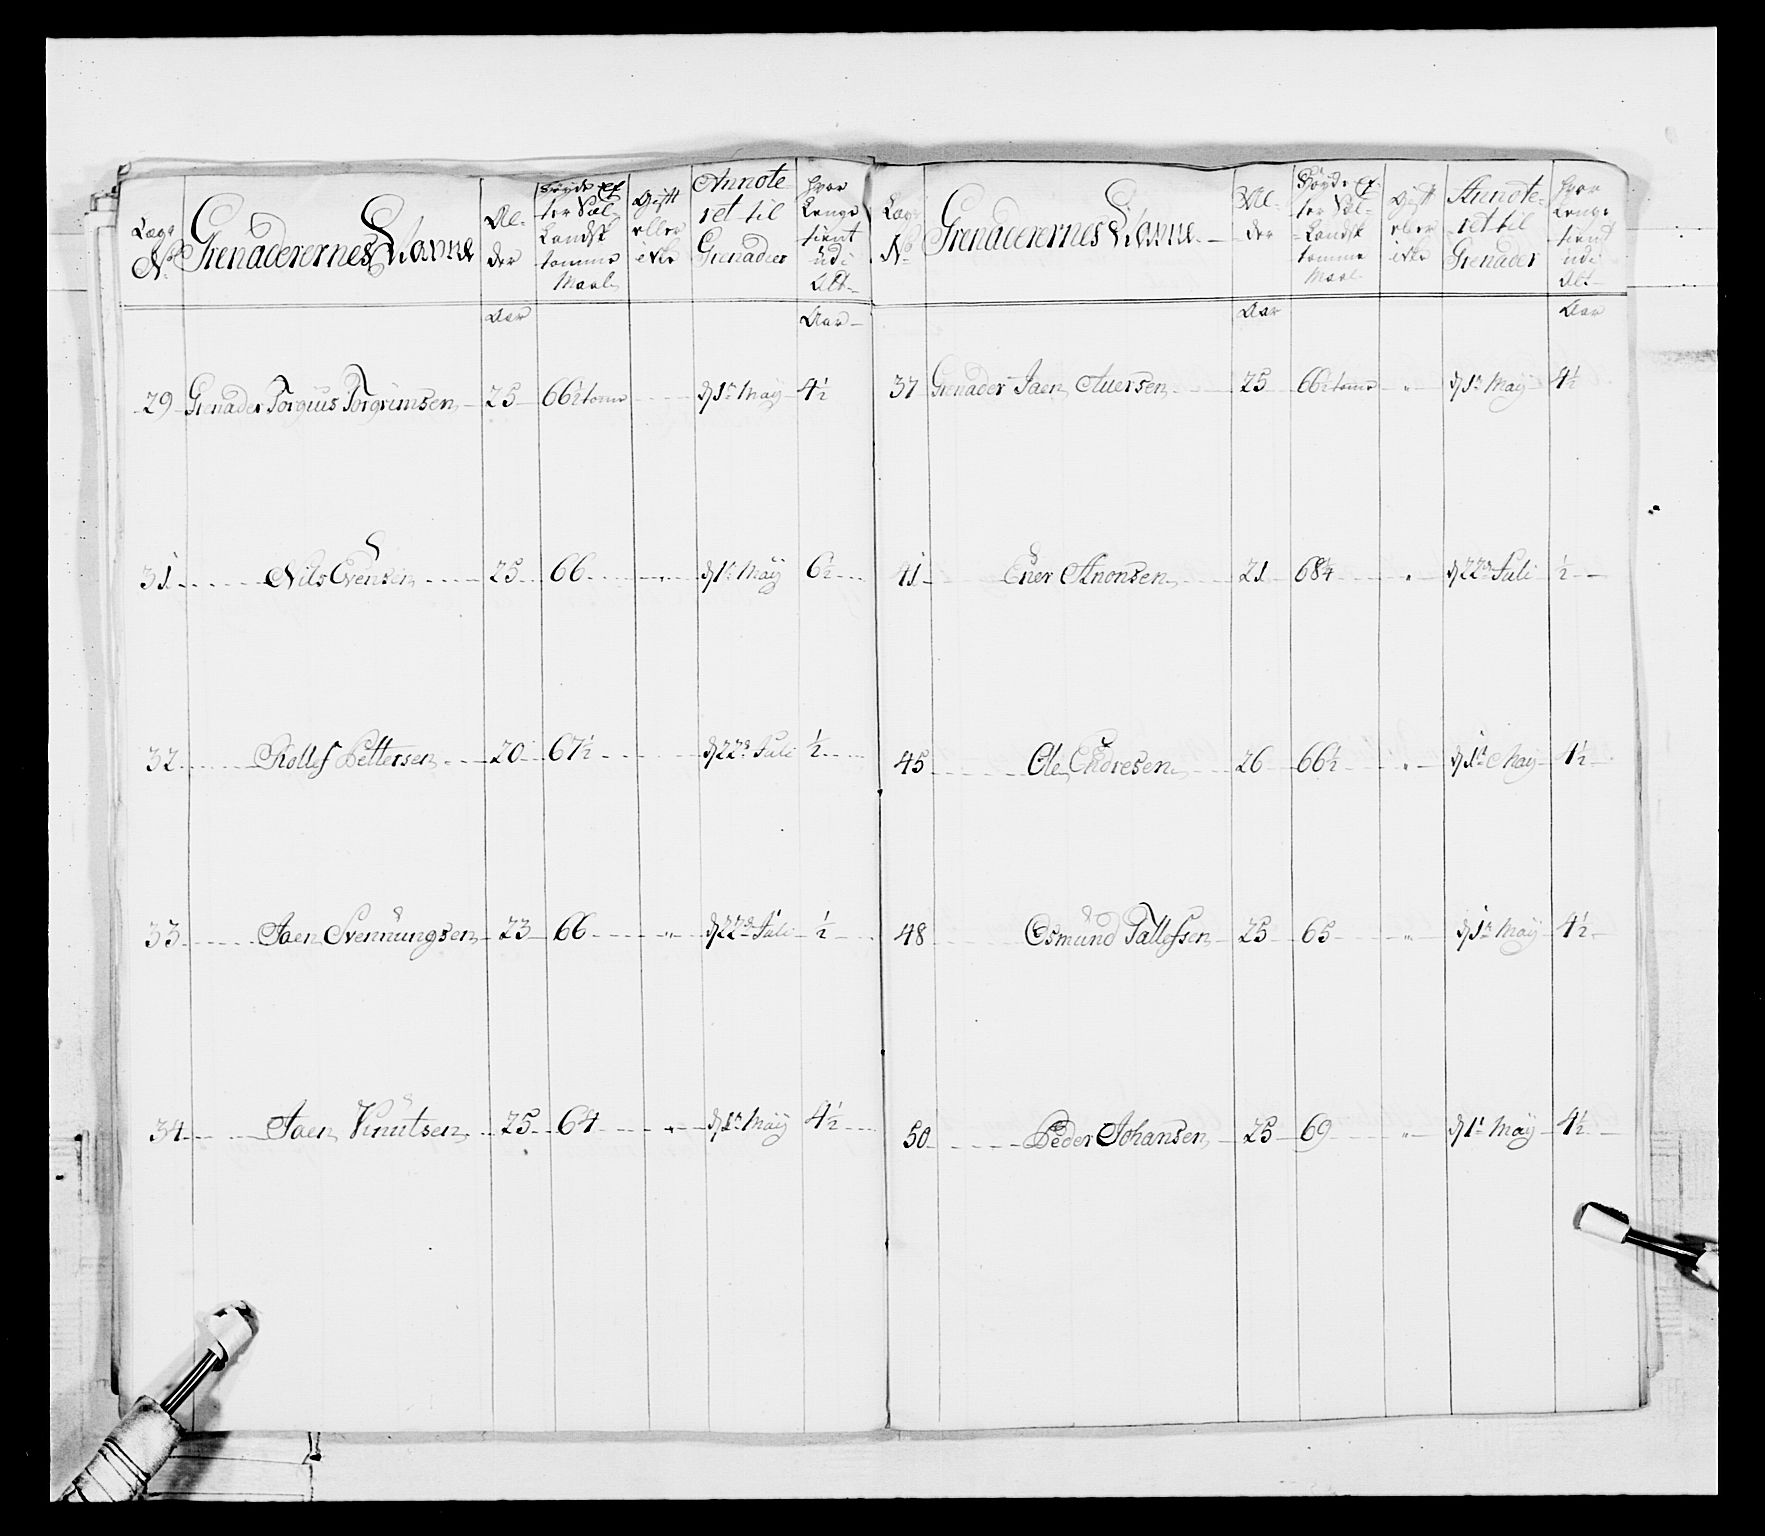 Lægs No Grenaderernes Navne Al- der Høyde ef- ter Sæl- Landsk tomme Maal Gift eller ikke Annote- ret til Grenadeer Hvor Lenge tient udi Alt
Aar Aar
29 Grenader Torgius Torgrimsen 25 66½ tome d 1te May 4½
31 Nils Evensen 25 66 d 1te May 6½
32 Rollef Pettersen 20 67½ d 22de Juli ½
33 Jaen Svennungsen 23 66 " d 22de Juli ½
34 Jaen Knutsen 25 64 " d 1te May 4½
Lægs No Grenaderernes Navne Al- der Høyde ef- ter Sæl- Landsk tomme Maal Gift eller ikke Annote- ret til Grenader Hvor Lenge tient udi Alt
Aar Aar
37 Grenader Jaen Auersen 25 66½ tome " d 1te May 4½
41 Ener Anonsen 21 684 " d 22de Juli ½
45 Ole Endresen 26 66½ " d 1te May 4½
48 Osmund Tallefsen 25 65 " d 1te May 4½
50 Peder Johansen 25 69 " d 1te May 4½